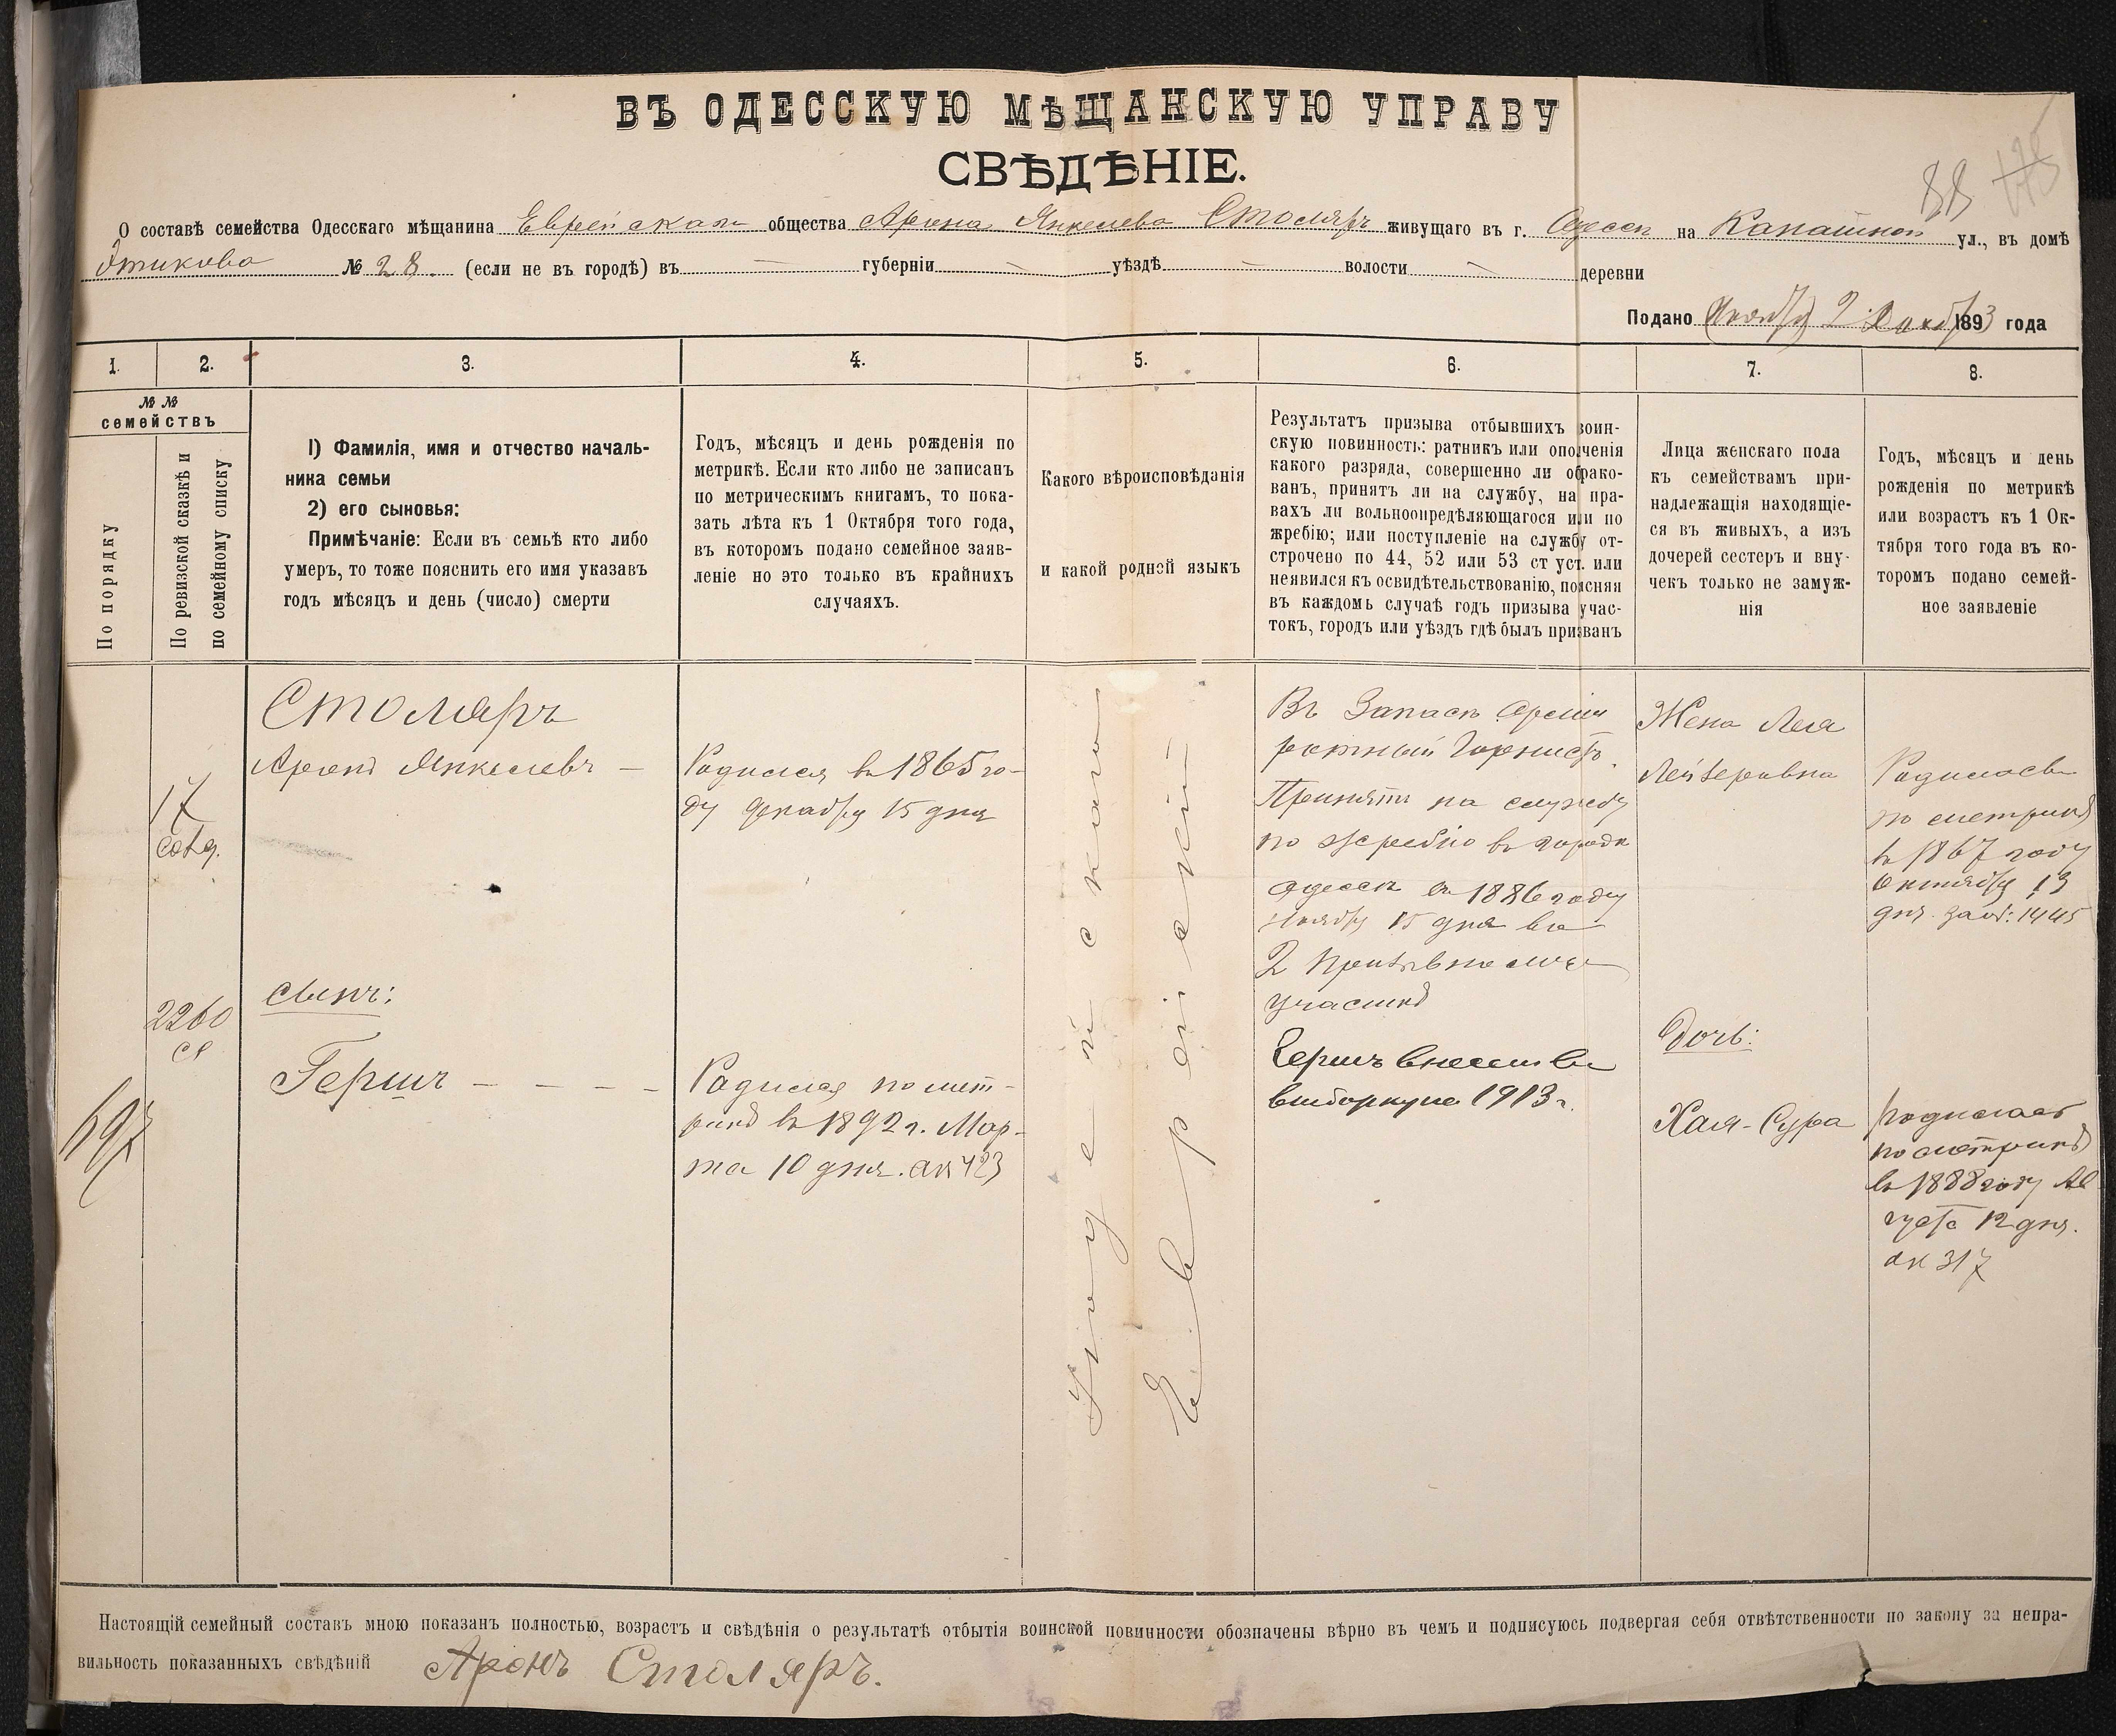 ВЪ ОДЕССКУЮ МѢЩАНСКУЮ УПРАВУ
СВѢДѢНІЕ.
88
О составѣ семейства Одесскаго мѣщанина Еврейскаго общества Арона Янкелева Столяръ живущаго въ г. Одессѣ на Канатной ул., въ домѣ
№ 28. (если не въ городѣ) въ губерніи уѣздѣ волости деревни
Подано Ноября 2 1893 года
1. 2. 3. 4. 5. 6. 7. 8.
№ №
семействъ
По порядку
По ревизской сказкѣ и
по семейному списку
1) Фамилія, имя и отчество началь-
ника семьи
2) его сыновья:
Примѣчаніе: Если въ семьѣ кто либо
умеръ, то тоже пояснить его имя указавъ
годъ мѣсяцъ и день (число) смерти
Годъ, мѣсяцъ и день рожденія по
метрикѣ. Если кто либо не записанъ
по метрическимъ книгамъ, то пока-
зать лѣта къ 1 Октября того года,
въ которомъ подано семейное заяв-
леніе но это только въ крайнихъ
случаяхъ.
Какого вѣроисповѣданія
и какой родной языкъ
Результатъ призыва отбывшихъ воин-
скую повинность: ратникъ или ополченія
какого разряда, совершенно ли обрако-
ванъ, принятъ ли на службу, на пра-
вахъ ли вольноопредѣляющагося или по
жребію; или поступленіе на службу от-
строчено по 44, 52 или 53 ст уст. или
неявился къ освидѣтельствованію, поясняя
въ каждомъ случаѣ годъ призыва учас-
токъ, городъ или уѣздъ гдѣ былъ призванъ
Лица женскаго пола
къ семействамъ при-
надлежащія находящіе-
ся въ живыхъ, а изъ
дочерей сестеръ и вну-
чекъ только не замуж-
нія
Годъ, мѣсяцъ и день
рожденія по метрикѣ
или возрастъ къ 1 Ок-
тября того года въ ко-
торомъ подано семей-
ное заявленіе
17
2260
697
Столяръ
Аронъ Янкелевъ —
сынъ:
Гершъ — — — —
Родился въ 1865 го-
ду декабря 15 дня
Родился по мет-
рикѣ въ 1892 г. Мар-
та 10 дня. ак 423
Іудейскаго
Еврейскій
Въ Запасѣ Арміи
ротный Горнистъ.
Принятъ на службу
по жребію въ городѣ
Одессѣ въ 1886 году
Ноября 15 дня во
2 Призывномъ
участкѣ
Гершъ внесенъ въ
1913 г.
Жена Лея
Лейзеровна
Дочь:
Хая-Сура
Родилась
по метрикѣ
въ 1867 году
Октября 13
дня. 1445
Родилась
по метрикѣ
въ 1888 году Ав
густа 12 дня.
ак 317
Настоящій семейный составъ мною показанъ полностью, возрастъ и свѣдѣнія о результатѣ отбытія воинской повинности обозначены вѣрно въ чемъ и подписуюсь подвергая себя отвѣтственности по закону за непра-
вильность показанныхъ свѣдѣній Аронъ Столяръ.